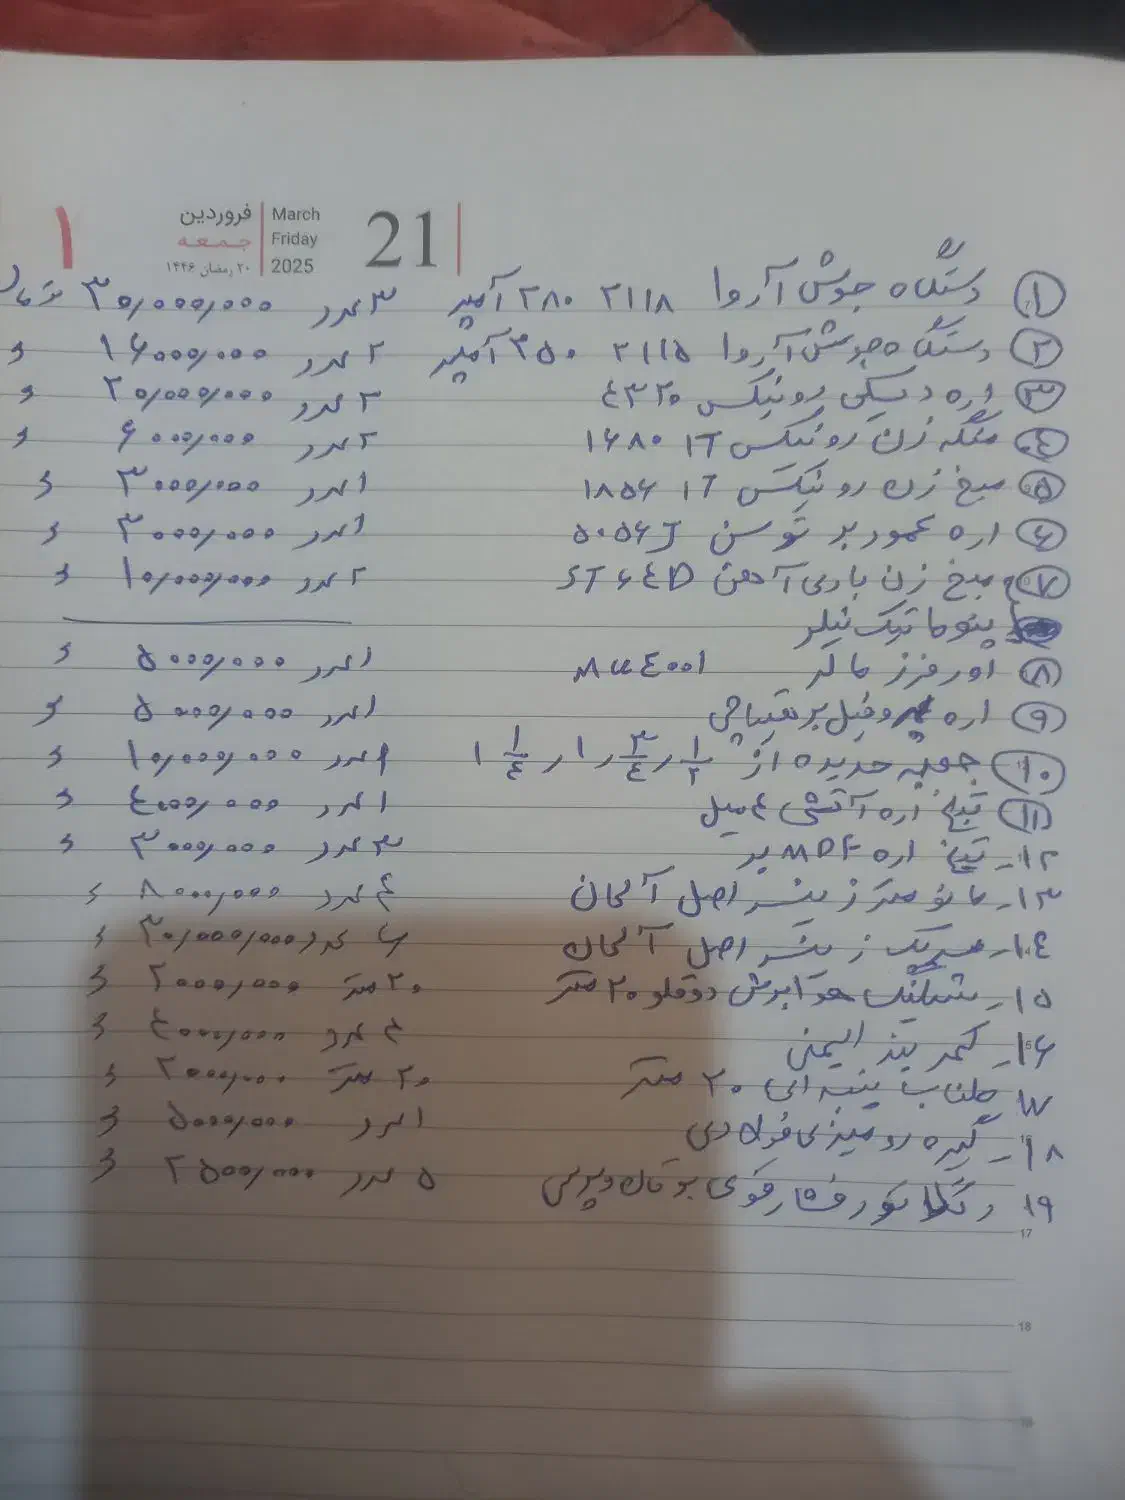 21
March
Friday
2025
فروردین
جمعه
۲۰ رمضان ۱۴۴۶
۱
① دستگاه جوش آروا ۲۱۱۸ ۲۸۰ آمپر ۳ عدد ۳۰/۰۰۰/۰۰۰ تومان
② دستگاه جوش آروا ۲۱۱۵ ۲۵۰ آمپر ۲ عدد ۱۶۰۰۰/۰۰۰ 〃
③ اره دیسکی رونیکس ۴۳۲۰ ۲ عدد ۲۰/۰۰۰/۰۰۰ 〃
④ منگنه زن رونیکس ۱۶۸۰ ۱T ۲ عدد ۶۰۰۰/۰۰۰ 〃
⑤ میخ زن رونیکس ۱۸۵۶ ۱T ۱ عدد ۳۰۰۰/۰۰۰ 〃
⑥ اره عمودبر توسن ۵۰۵۶J ۱ عدد ۳۰۰۰/۰۰۰ 〃
⑦ میخ زن بادی آهن ST۶۴D ۲ عدد ۱۰/۰۰۰/۰۰۰ 〃
پنوماتیک نیلر
⑧ اورفرز ۱ عدد ۵۰۰۰/۰۰۰ 〃
⑨ اره پروفیل بر نقیباچی ۱ عدد ۵۰۰۰/۰۰۰ 〃
⑩ جعبه حدیده از ۱/۲ ، ۳/۴ ، ۱ ، ۱ ۱/۴ عدد ۱۰/۰۰۰/۰۰۰ 〃
⑪ تیغ اره آتشی ۴ میل ۱ عدد ۴۰۰۰/۰۰۰ 〃
۱۲ـ تیغ اره MDF بر ۳ عدد ۳۰۰۰/۰۰۰ 〃
۱۳ـ مانومتر زینسر اصل آلمان ۴ عدد ۸۰۰۰/۰۰۰ 〃
۱۴ـ زینسر اصل آلمان عدد ۳۰/۰۰۰/۰۰۰ 〃
۱۵ـ شیلنگ هوابرش دوقلو ۲۰ متر ۲۰ متر ۲۰۰۰/۰۰۰ 〃
۱۶ـ کمربند ایمنی ۴ عدد ۴۰۰۰/۰۰۰ 〃
۱۷ طناب پنبه ای ۲۰ متر ۲۰ متر ۲۰۰۰/۰۰۰ 〃
۱۸ـ گیره رومیزی فولادی ۱ عدد ۵۰۰۰/۰۰۰ 〃
۱۹ رگلاتور فشار قوی بوتان و پرسی ۵ عدد ۲۵۰۰/۰۰۰ 〃
17
18